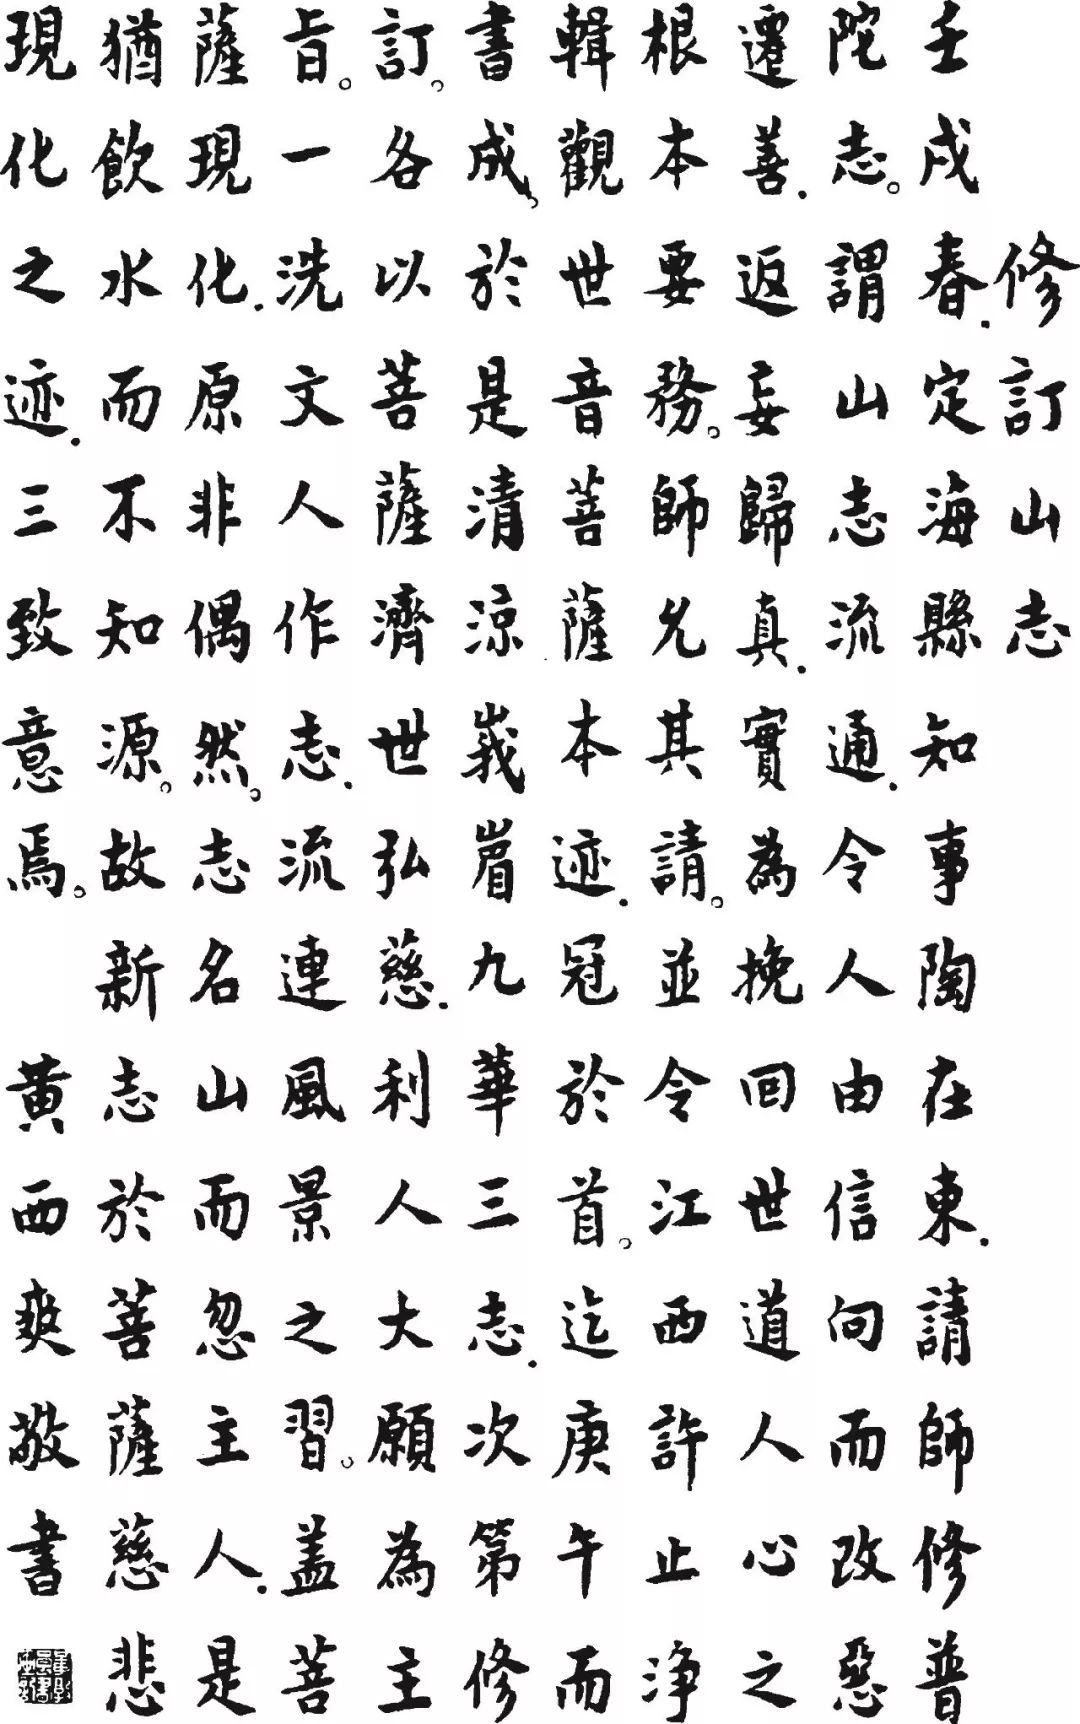 修訂山志
壬戌春.定海縣知事陶在東.請師修普
陀志。謂山志流通.令人由信向而改惡
遷善.返妄歸真.實為挽回世道人心之
根本要務。師允其請。並令江西許止淨
輯觀世音菩薩本迹.冠於首。迄庚午而
書成,於是清涼峩眉九華三志.次第修
訂。各以菩薩濟世弘慈.利人大願為主
旨。一洗文人作志.流連風景之習。蓋菩
薩現化.原非偶然。志名山而忽主人.是
猶飲水而不知源。故新志於菩薩慈悲
現化之迹.三致意焉。
黃西爽敬書